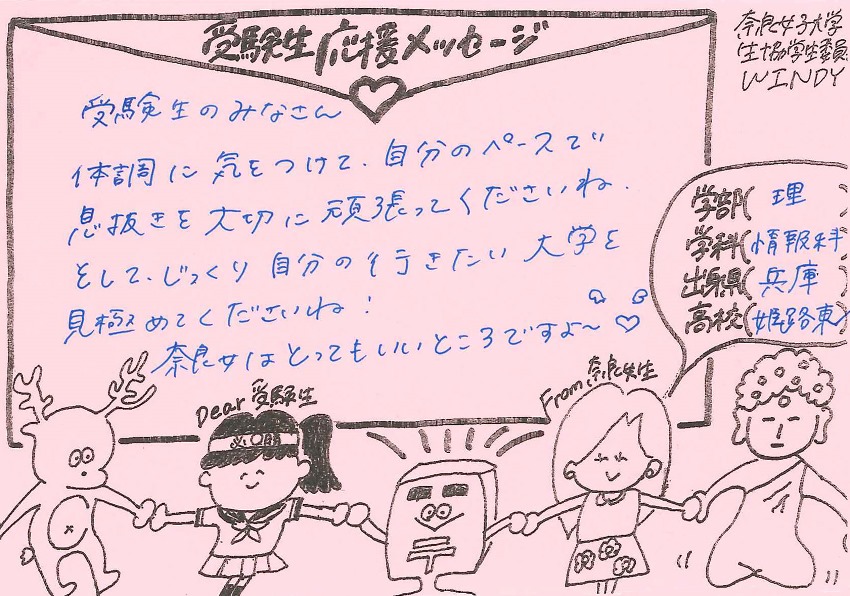 受験生応援メッセージ
奈良女子大学
生協学生委員
WINDY
受験生のみなさん
体調に気をつけて、自分のペースで
息抜きを大切に頑張ってくださいね.
そして、じっくり自分の行きたい大学を
見極めてくださいね!
奈良女はとってもいいところですよ~♡
学部(理)
学科(情報科)
出身県(兵庫)
高校(姫路東)
Dear 受験生
From 奈良女生
必〇勝
〒